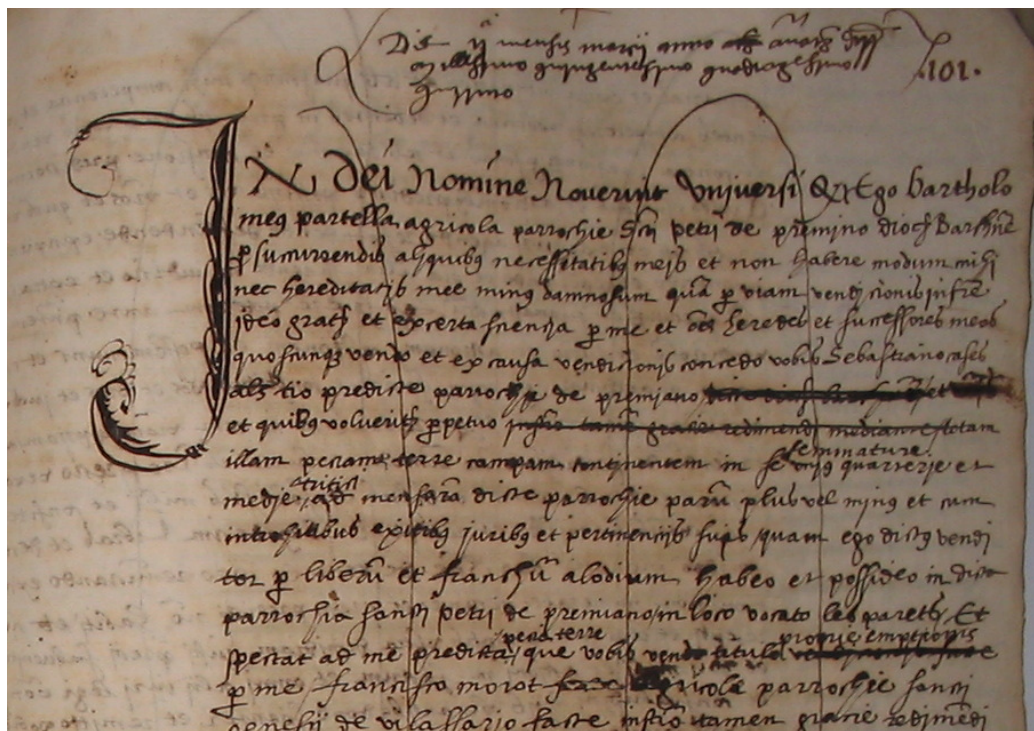 Die ij mensis marcii anno
millesimo quingentesimo quadragesimo
101.
In Dei Nomine Noverint Universi Ego Bartholo
meus partella agricola parrochie Sti petri de premino
p succurrendis aliquibus necessitatibus meis et non habere modum mihi
nec hereditatis mee minus damnosum quā p viam vendicionis
ideo gratis et ex certa sciencia p me et heredes et successores meos
quoscunque vendo et ex causa vendicionis concedo vobis Sebastiano cases
als tio predicte parrochie de premiano
et quibus volueritis perpetuo totam
seminature
illam peciam terre campam continentem in se unius quarterie et
tritici
medie ad mensuram dicte parrochie parū plus vel minus et cum
introhitibus exitibus juribus et pertinenciis suis quam ego dictus vendi
tor p liberū et franchū alodium habeo et possideo in dicta
parrochia sancti petri de premiano in loco vocato les parets Et
pecia terre proprie emptionis
spectat ad me predicta que vobis vendo titulo
p me francisco morot agricole parrochie sancti
genesii de vilassario facte tamen gracie redimēdi